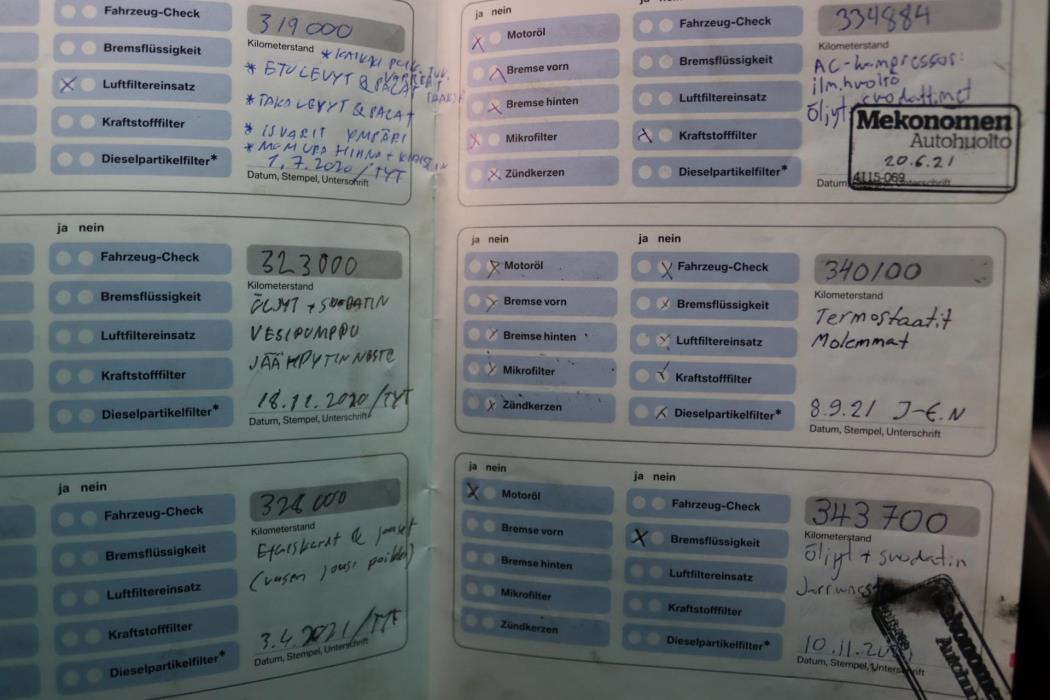 Fahrzeug-Check
Bremsflüssigkeit
Luftfiltereinsatz
Kraftstofffilter
Dieselpartikelfilter*
319000
Kilometerstand
* KAIKKI
* ETULEVYT & PALAT
* TAKALEVYT & PALAT
* ISKARIT YMPÄRI
1.7.2020/TYT
Datum, Stempel, Unterschrift
ja nein
Fahrzeug-Check
Bremsflüssigkeit
Luftfiltereinsatz
Kraftstofffilter
Dieselpartikelfilter*
323000
Kilometerstand
ÖLJYT + SUODATIN
VESIPUMPPU
JÄÄHDYTINNESTE
18.11.2020/TYT
Datum, Stempel, Unterschrift
ja nein
Fahrzeug-Check
Bremsflüssigkeit
Luftfiltereinsatz
Kraftstofffilter
Dieselpartikelfilter*
328000
Kilometerstand
Etuiskarit & jouset
(vasen jousi poikki)
3.4.2021/TYT
Datum, Stempel, Unterschrift
ja nein
Motoröl
Bremse vorn
Bremse hinten
Mikrofilter
Zündkerzen
ja
Fahrzeug-Check
Bremsflüssigkeit
Luftfiltereinsatz
Kraftstofffilter
Dieselpartikelfilter*
334884
Kilometerstand
AC-kompressori
ilm.huolto
Öljyt, suodattimet
Mekonomen
Autohuolto
20.6.21
4115-069
Datum
ja nein
Motoröl
Bremse vorn
Bremse hinten
Mikrofilter
Zündkerzen
ja nein
Fahrzeug-Check
Bremsflüssigkeit
Luftfiltereinsatz
Kraftstofffilter
Dieselpartikelfilter*
340100
Kilometerstand
Termostaatit
Molemmat
8.9.21 J-E.N
Datum, Stempel, Unterschrift
ja nein
Motoröl
Bremse vorn
Bremse hinten
Mikrofilter
Zündkerzen
ja nein
Fahrzeug-Check
Bremsflüssigkeit
Luftfiltereinsatz
Kraftstofffilter
Dieselpartikelfilter*
343700
Kilometerstand
Öljyt + suodatin
10.11.20
Datum, Stempel, Unterschrift
Mekonomen
Autohuolto